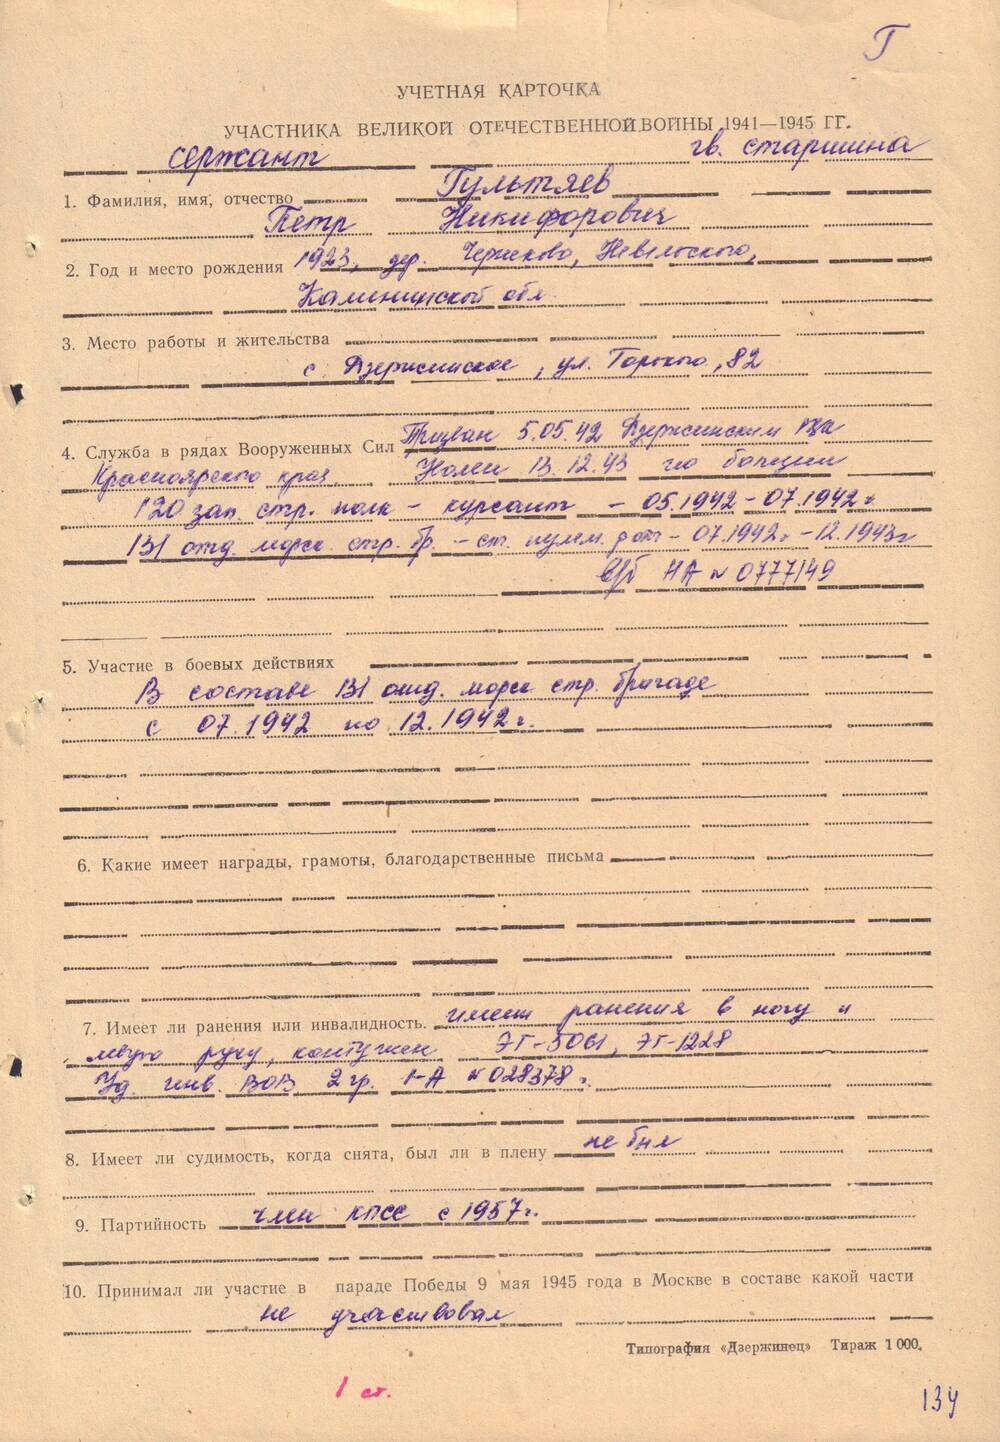 Г
УЧЕТНАЯ КАРТОЧКА
УЧАСТНИКА ВЕЛИКОЙ ОТЕЧЕСТВЕННОЙ ВОЙНЫ 1941—1945 ГГ.
сержант гв. старшина
1. Фамилия, имя, отчество Гультяев
Петр Никифорович
2. Год и место рождения 1923, дер. Невельского,
Калининской обл.
3. Место работы и жительства
с. Дзержинское, ул. Горького, 82
4. Служба в рядах Вооруженных Сил Призван 5.05.42 Дзержинским РВК
Красноярского края. 13.12.43 по болезни
120 зап. стр. полк – курсант – 05.1942 – 07.1942 г.
131 отд. морск. стр. бр. – ст. пулем. роты – 07.1942 г. – 12.1943 г.
в/б НА № 0777149
5. Участие в боевых действиях
В составе 131 отд. морск стр. бригаде
с 07.1942 по 12.1942 г.
6. Какие имеет награды, грамоты, благодарственные письма
7. Имеет ли ранения или инвалидность. имеет ранения в ногу и
левую руку, контужен ЭГ-5061, ЭГ-1228
Уд. инв. ВОВ 2 гр. № 028378 г.
8. Имеет ли судимость, когда снята, был ли в плену не был
9. Партийность член КПСС с 1957 г.
10. Принимал ли участие в параде Победы 9 мая 1945 года в Москве в составе какой части
не участвовал
Типография «Дзержинец» Тираж 1 000.
1 ст.
134